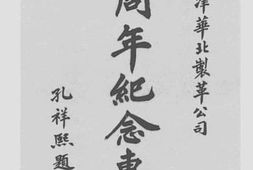 津華北製革公司
周年紀念專
孔祥熙題